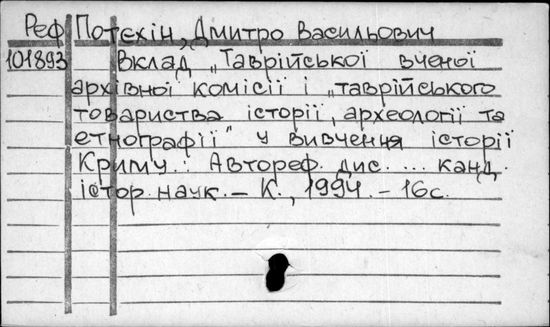 Реф Потєхін, Дмитро Васильович
101893 Вклад „Таврійської вченої
архівної комісії і „таврійського
товариства історії, археології та
етнографії" у вивчення історії
Криму.: Автореф. дис. ... канд.
істор. наук. – К., 1994. – 16с.